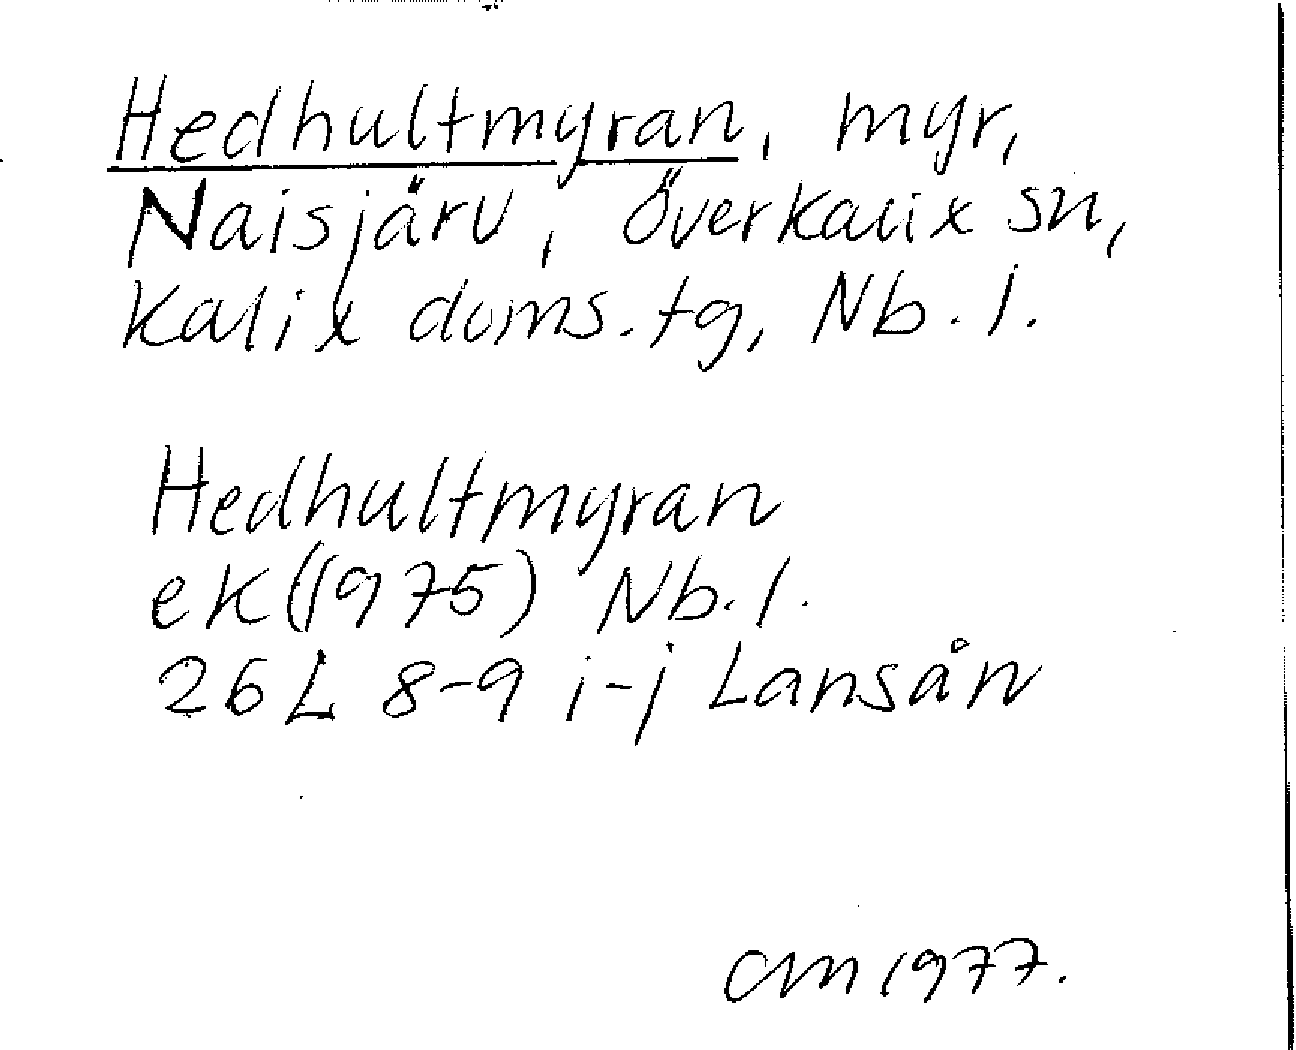 Hedhultmyran, myr,
Naisjärv, Överkalix sn,
Kalix doms.tg, Nb.l.
Hedhultmyran
ek (1975) Nb.l.
26 L 8-9 i-j Lansån
CM 1977.